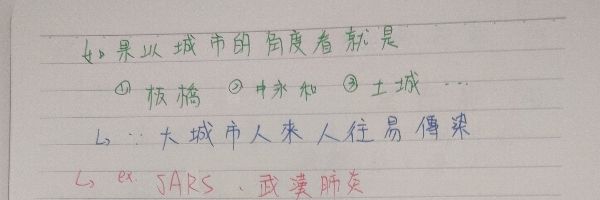 如果以城市的角度看就是
① 板橋 ② 中永和 ③ 土城 ...
↳ ∵ 大城市人來人往易傳染
↳ ex. SARS、武漢肺炎